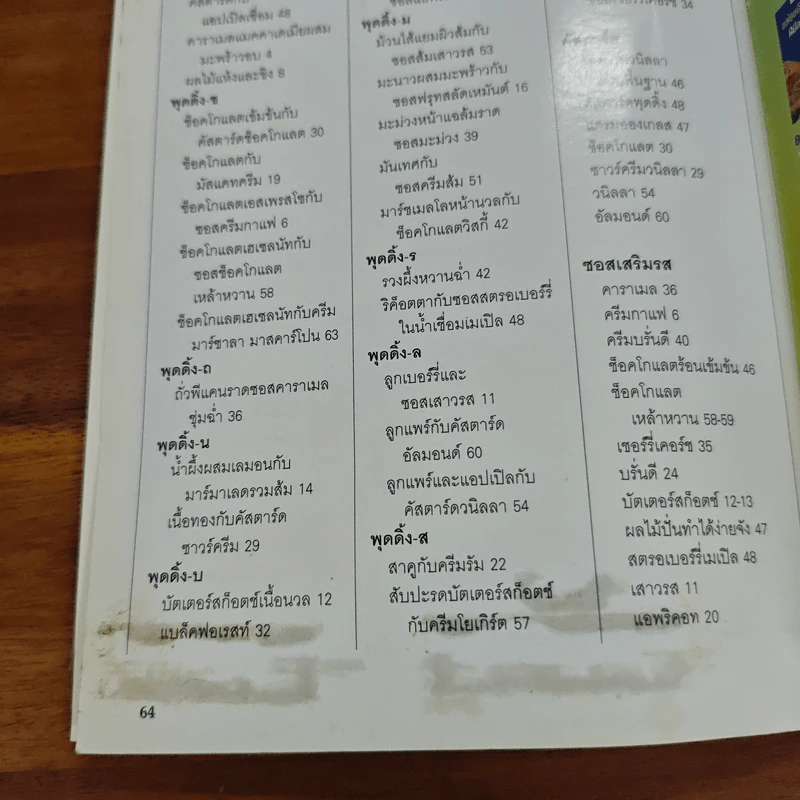 แอปเปิลเชื่อม 48
คาราเมลแมคคาเดเมียผสม
มะพร้าวอบ 4
ผลไม้แห้งและขิง 8
พุดดิ้ง-ช
ช็อคโกแลตเข้มข้นกับ
คัสตาร์ดช็อคโกแลต 30
ช็อคโกแลตกับ
มัสแคทครีม 19
ช็อคโกแลตเอสเพรสโซกับ
ซอสครีมกาแฟ 6
ช็อคโกแลตเฮเซลนัทกับ
ซอสช็อคโกแลต
เหล้าหวาน 58
ช็อคโกแลตเฮเซลนัทกับครีม
มาร์ซาลา มาสคาร์โปน 63
พุดดิ้ง-ถ
ถั่วพีแคนราดซอสคาราเมล
ชุ่มฉ่ำ 36
พุดดิ้ง-น
น้ำผึ้งผสมเลมอนกับ
มาร์มาเลดรวมส้ม 14
เนื้อทองกับคัสตาร์ด
ซาวร์ครีม 29
พุดดิ้ง-บ
บัตเตอร์สก็อตช์เนื้อนวล 12
แบล็คฟอเรสท์ 32
พุดดิ้ง-ม
ม้วนไส้แยมผิวส้มกับ
ซอสส้มเสาวรส 53
มะนาวผสมมะพร้าวกับ
ซอสฟรุทสลัดเหมันต์ 16
มะม่วงหน้าแฉล้มราด
ซอสมะม่วง 39
มันเทศกับ
ซอสครีมส้ม 51
มาร์ชเมลโลหน้านวลกับ
ช็อคโกแลตวิสกี้ 42
พุดดิ้ง-ร
รวงผึ้งหวานฉ่ำ 42
ริค็อตตากับซอสสตรอเบอร์รี่
ในน้ำเชื่อมเมเปิล 48
พุดดิ้ง-ล
ลูกเบอร์รี่และ
ซอสเสาวรส 11
ลูกแพร์กับคัสตาร์ด
อัลมอนด์ 60
ลูกแพร์และแอปเปิลกับ
คัสตาร์ดวนิลลา 54
พุดดิ้ง-ส
สาคูกับครีมรัม 22
สับปะรดบัตเตอร์สก็อตช์
กับครีมโยเกิร์ต 57
34
วนิลลา
พื้นฐาน 46
พุดดิ้ง 48
47
ช็อคโกแลต 30
ซาวร์ครีมวนิลลา 29
วนิลลา 54
อัลมอนด์ 60
ซอสเสริมรส
คาราเมล 36
ครีมกาแฟ 6
ครีมบรั่นดี 40
ช็อคโกแลตร้อนเข้มข้น 46
ช็อคโกแลต
เหล้าหวาน 58-59
เชอร์รี่เคอร์ช 35
บรั่นดี 24
บัตเตอร์สก็อตช์ 12-13
ผลไม้ปั่นทำได้ง่ายจัง 47
สตรอเบอร์รี่เมเปิล 48
เสาวรส 11
แอพริคอท 20
64